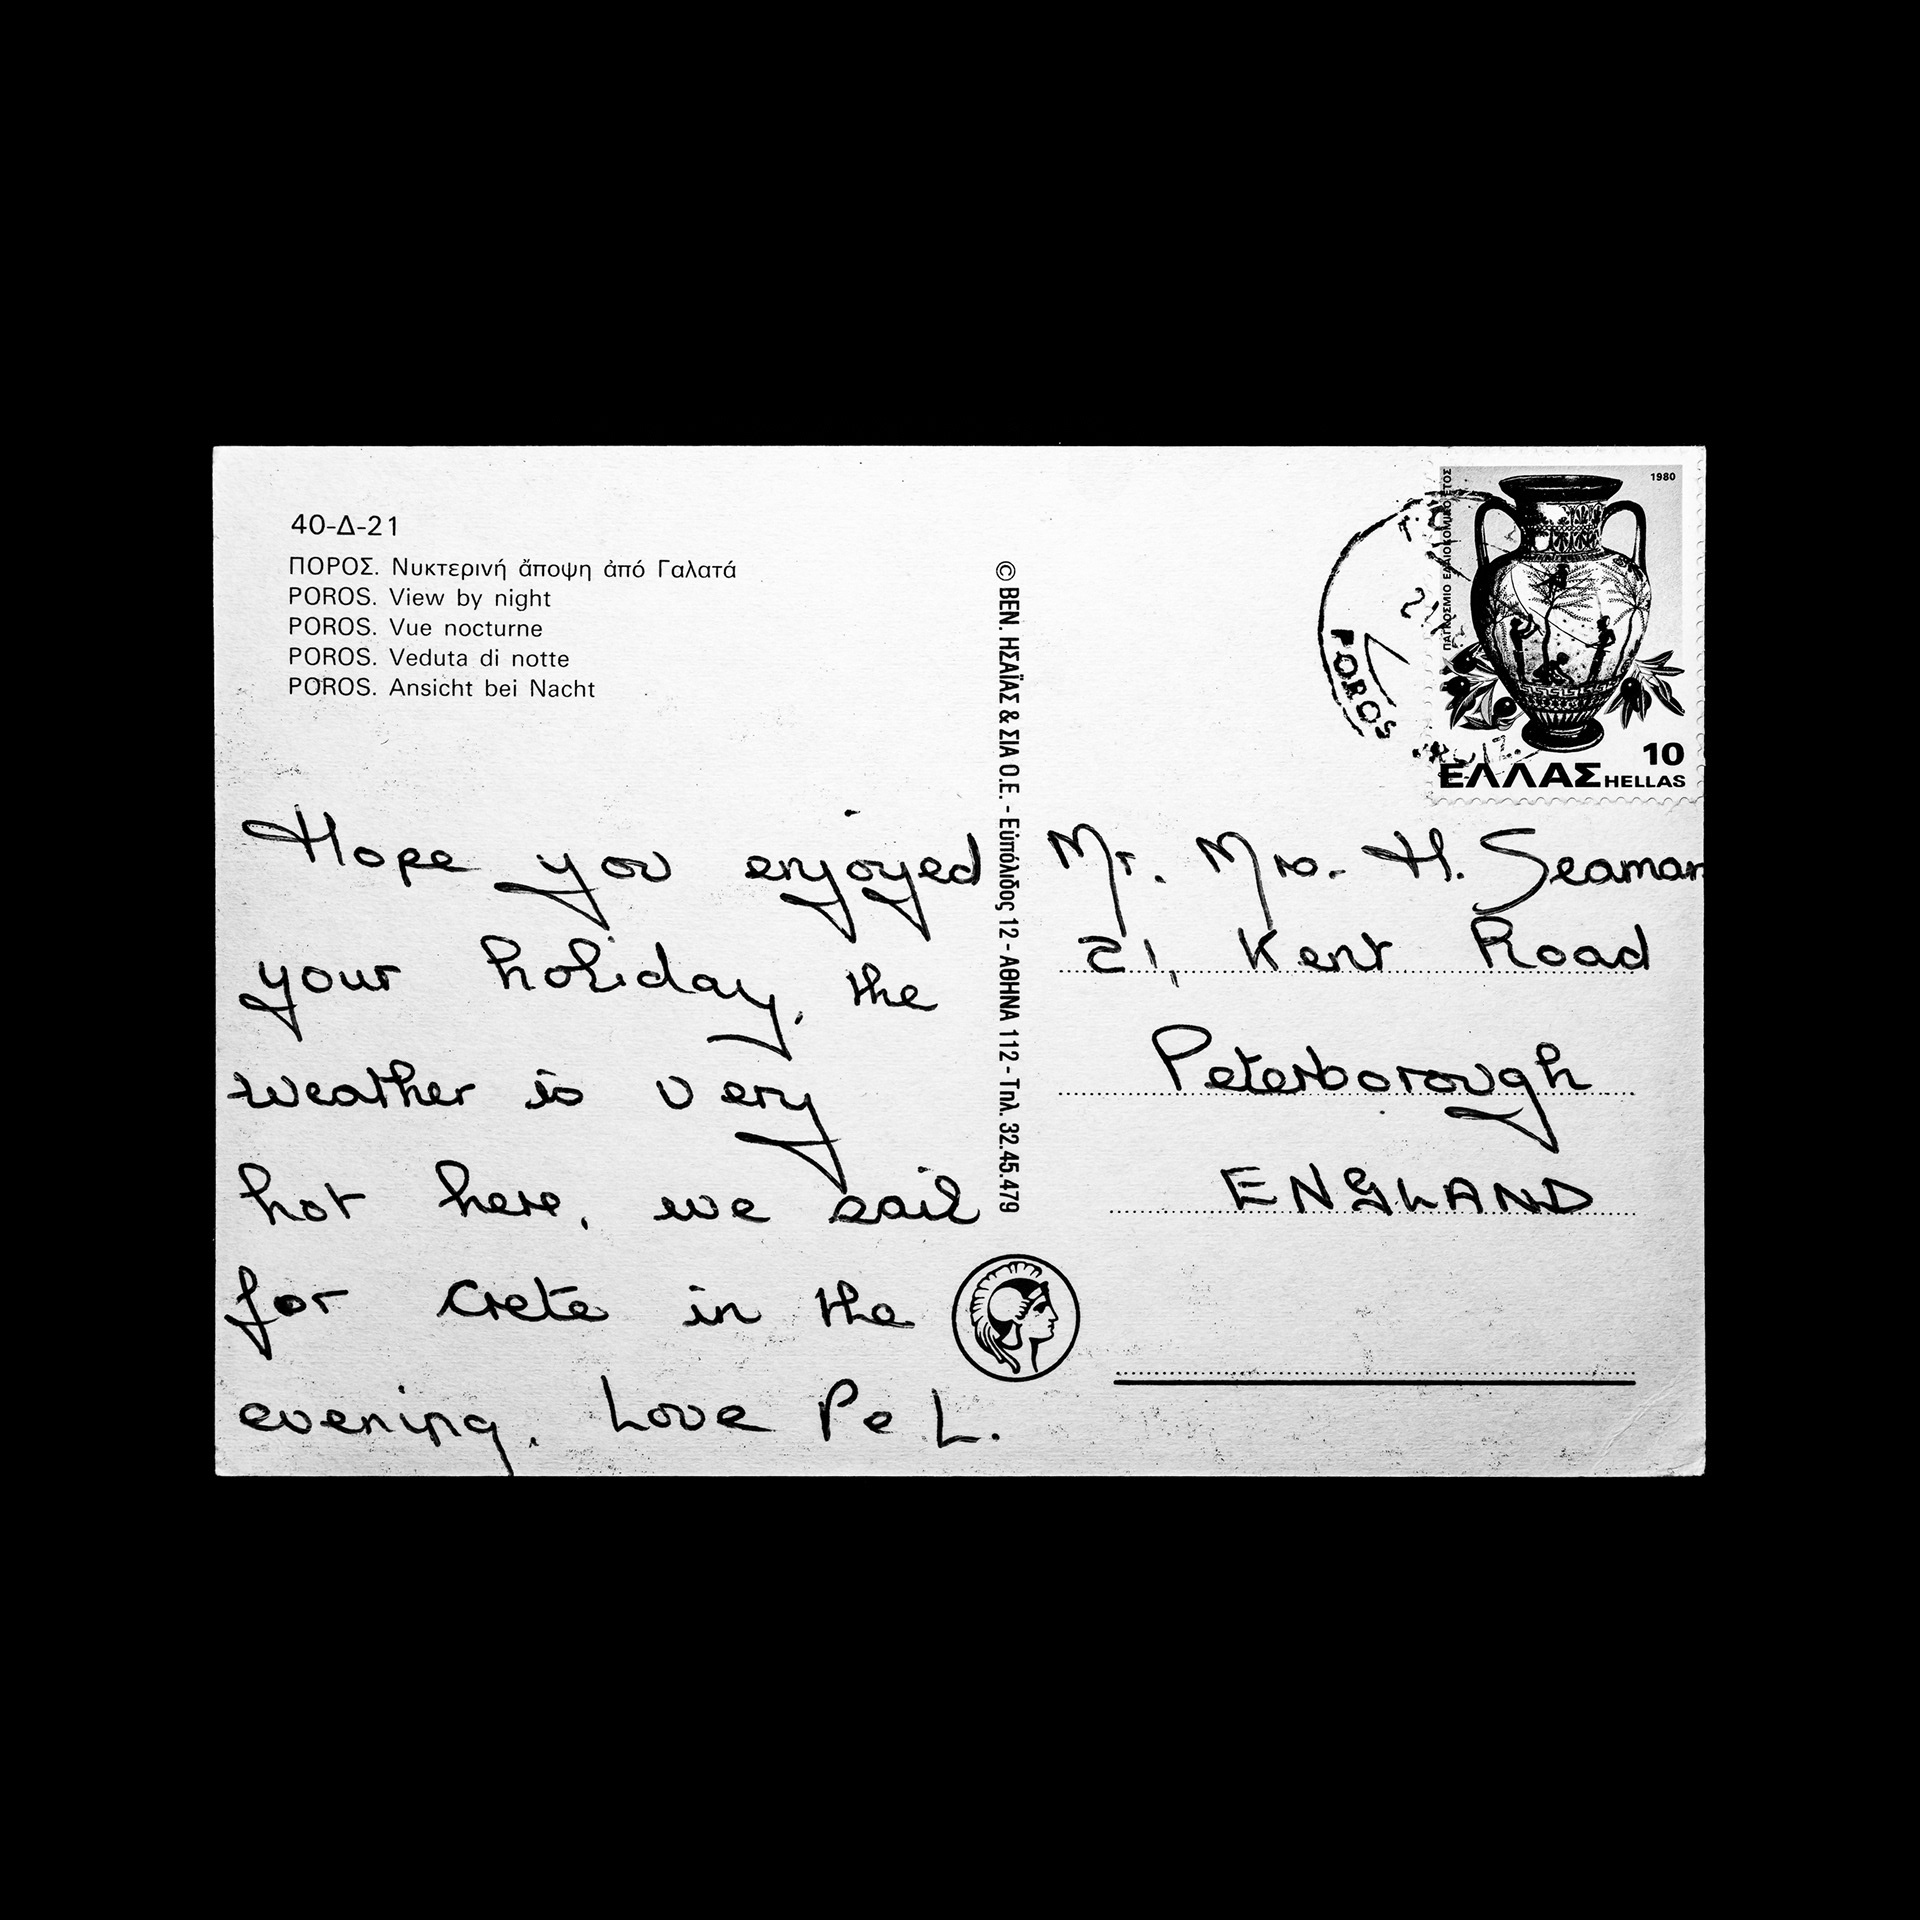 40-Δ-21
ΠΟΡΟΣ. Νυκτερινή ἄποψη ἀπό Γαλατά
POROS. View by night
POROS. Vue nocturne
POROS. Veduta di notte
POROS. Ansicht bei Nacht
Hope you enjoyed
your holiday, the
weather is very
hot here, we sail
for Crete in the
evening. Love P e L.
© ΒΕΝ. ΗΣΑΪΑΣ & ΣΙΑ Ο.Ε. - Εὐπόλιδος 12 - ΑΘΗΝΑ 112 - Τηλ. 32.45.479
POROS
1980
ΠΑΓΚΟΣΜΙΟ ΕΛΑΙΟΚΟΜΙΚΟ ΕΤΟΣ
10
ΕΛΛΑΣ HELLAS
Mr. Mrs. H. Seaman
21, Kent Road
Peterborough
ENGLAND